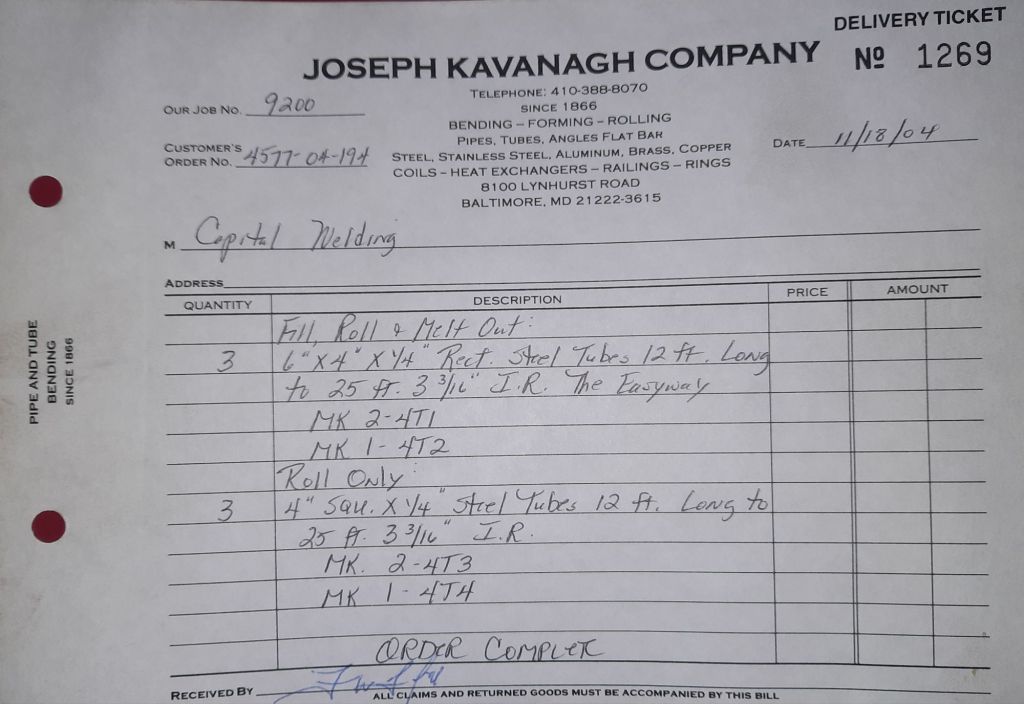 DELIVERY TICKET
JOSEPH KAVANAGH COMPANY
Nº 1269
TELEPHONE: 410-388-8070
SINCE 1866
OUR JOB NO. 9200
BENDING – FORMING – ROLLING
PIPES, TUBES, ANGLES FLAT BAR
DATE 11/18/04
CUSTOMER'S
ORDER NO. 4577-04-194
STEEL, STAINLESS STEEL, ALUMINUM, BRASS, COPPER
COILS – HEAT EXCHANGERS – RAILINGS – RINGS
8100 LYNHURST ROAD
BALTIMORE, MD 21222-3615
M Capital Welding
ADDRESS
QUANTITY DESCRIPTION PRICE AMOUNT
Fill, Roll & Melt Out:
3 6" X 4" X 1/4" Rect. Steel Tubes 12 ft. Long
to 25 ft. 3 3/16" I.R. The Easyway
MK 2-4T1
MK 1-4T2
Roll Only:
3 4" Squ. X 1/4" Steel Tubes 12 ft. Long to
25 ft. 3 3/16" I.R.
MK. 2-4T3
MK 1-4T4
ORDER COMPLETE
RECEIVED BY
ALL CLAIMS AND RETURNED GOODS MUST BE ACCOMPANIED BY THIS BILL
PIPE AND TUBE
BENDING
SINCE 1866